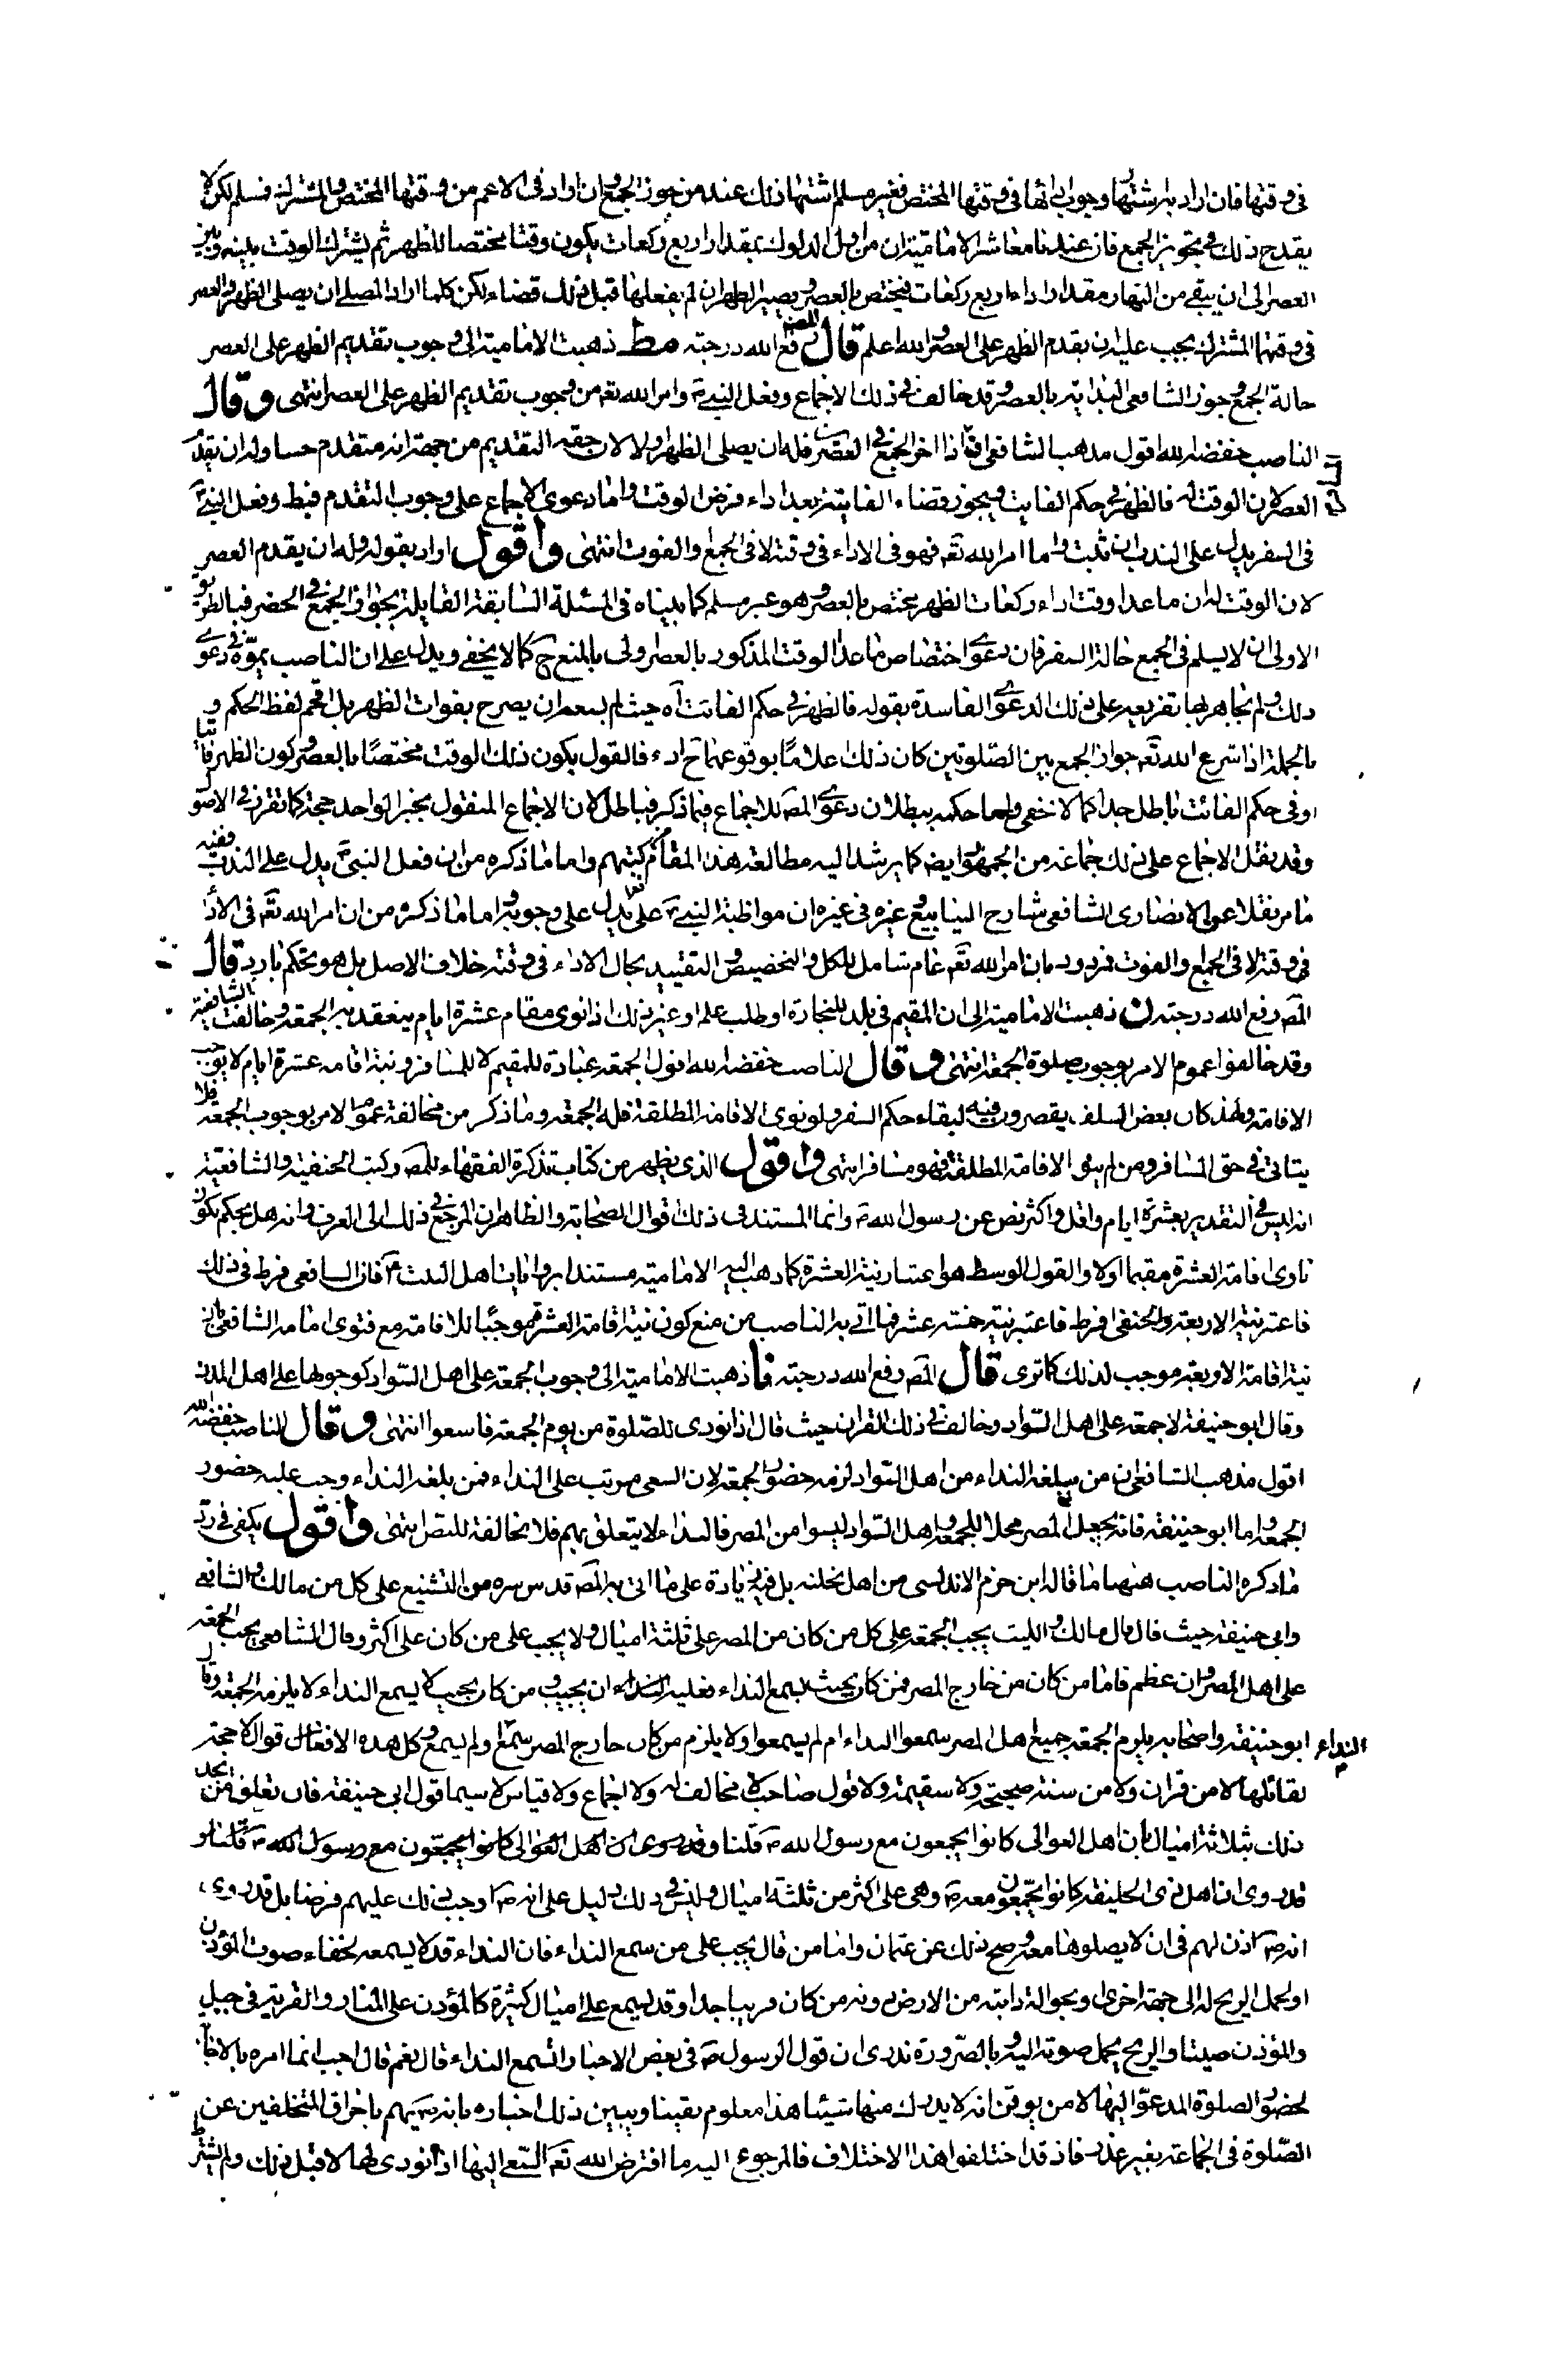 فى وقتها فان اراد باشتهار وجوب ادائها فى وقتها المختص فغير مسلم اشتهار ذلك عند من جوز الجمع وان اراد فى الاعم من وقتها المختص والمشترك فمسلم لكن لا
يقدح ذلك فى تجويز الجمع فان عندنا معاشر الامامية ان من اول الدلوك بمقدار اربع ركعات يكون وقتا مختصا للظهر ثم يشترك الوقت بينه وبين
العصر الى ان يبقى من النهار مقدار اداء اربع ركعات فيختص بالعصر ويصير الظهر ان لم يفعلها قبل ذلك قضاء لكن كلما اراد المصلى ان يصلى الظهر والعصر
فى وقتهما المشترك يجب عليه ان يقدم الظهر على العصر والله اعلم قال المصنف رفع الله درجته مط ذهبت الامامية الى وجوب تقديم الظهر على العصر
حالة الجمع وجوز الشافعى البداية بالعصر وقد خالف فى ذلك الاجماع وفعل النبى ص وامر الله تعه من وجوب تقديم الظهر على العصر انتهى وقال
الناصب خفضه الله اقول مذهب الشافعى انه اذا اخر الجمع فى العصر فله ان يصلى الظهر اولا لان حقه التقديم من جهة انه متقدم حسا وله ان يقدم
العصر لان الوقت له فالظهر فى حكم الفايت ويجوز قضاء الفايتة بعد اداء فرض الوقت واما دعوى الاجماع على وجوب التقدم فبط وفعل النبى ص
فى السفر يدل على الندب ان ثبت واما امر الله تعه فهو فى الاداء فى وقته لا فى الجمع والفوت انتهى واقول اراد بقوله وله ان يقدم العصر
لان الوقت له ان ماعدا وقت اداء ركعات الظهر يختص بالعصر وهو غير مسلم كما بيناه فى المسئلة السابقة القايلة بجواز الجمع فى الحضر فبالطريق
الاولى ان لا يسلم فى الجمع حالة السفر فان دعوى اختصاص ماعدا الوقت المذكور بالعصر اولى بالمنع ح كما لا يخفى ويدل على ان الناصب يموّه فى دعوى
ذلك ولم يجاهر بها تفريعه على ذلك الدعوى الفاسدة بقوله فالظهر فى حكم الفائت آه حيث لم يسعه ان يصرح بفوات الظهر بل اقحم لفظ الحكم و
بالجملة اذا شرع الله تعه جواز الجمع بين الصلوتين كان ذلك علاما بوقوعهما ح اداء فالقول بكون ذلك الوقت مختصًا بالعصر وكون الظهر فائتا
او فى حكم الفائت باطل جدا كما لا يخفى واما حكمه ببطلان دعوى المص للاجماع فيما ذكر فباطل لان الاجماع المنقول بخبر الواحد حجة كما تقرر فى الاصول
وقد نقل الاجماع على ذلك جماعة من الجمهور ايضا كما يرشد اليه مطالعة هذا المقام من كتبهم واما ما ذكره من ان فعل النبى ص يدل على الندب ففيه
ما مر نقلا عن الانصارى الشافعى شارح الينابيع وغيره فى غيره ان مواظبة النبى ص على فعل يدل على وجوبه واما ما ذكره من ان امر الله تعه فى الاداء
فى وقته لا فى الجمع والفوت فمردود بان امر الله تعه عام شامل للكل والتخصيص والتقييد بحال الاداء فى وقته خلاف الاصل بل هو تحكم بارد قال
المص رفع الله درجته ن ذهبت الامامية الى ان المقيم فى بلد للتجارة او طلب علم او غير ذلك اذا نوى مقام عشرة ايام ينعقد به الجمعة وخالفت الشافعية
وقد خالفوا عموم الامر بوجوب صلوة الجمعة انتهى وقال الناصب خفضه الله اقول الجمعة عبادة للمقيم لا للمسافر ونية اقامة عشرة ايام لا يوجب
الاقامة ولهذا كان بعض السلف يقصرون فيه لبقاء حكم السفر ولو نوى الاقامة المطلقة فله الجمعة وما ذكر من مخالفة عموم الامر بوجوب الجمعة فلا
يتاتى فى حق المسافر ومن لم ينو الاقامة المطلقة فهو مسافر انتهى واقول الذى يظهر من كتاب تذكرة الفقهاء للمص وكتب الحنفية والشافعية
انه ليس فى التقدير بعشرة ايام واقل واكثر نص عن رسول الله ص وانما المستند فى ذلك اقوال الصحابة والظاهر ان المرجع فى ذلك الى العرف وانه هل يحكم بكون
ناوى اقامة العشرة مقيما او لا والقول الوسط هو اعتبار نية العشرة كما ذهب اليه الامامية مستندا بروايات اهل البيت ع فان الشافعى فرط فى ذلك
فاعتبر نية الاربعة والحنفى افرط فاعتبر نية خمسة عشر فما اتى به الناصب من منع كون نية اقامة العشرة موجبًا للاقامة مع فتوى امامه الشافعى بان
نية اقامة الاربعة موجب لذلك كما ترى قال المص رفع الله درجته نا ذهبت الامامية الى وجوب الجمعة على اهل السواد كوجوبها على اهل المدن
وقال ابو حنيفة لا جمعة على اهل السواد وخالف فى ذلك القران حيث قال اذا نودى للصلوة من يوم الجمعة فاسعوا انتهى وقال الناصب خفضه الله
اقول مذهب الشافعى ان من يبلغه النداء من اهل السواد لزمه حضور الجمعة لان السعى مرتب على النداء فمن بلغه النداء وجب عليه حضور
الجمعة واما ابو حنيفة فانه يجعل المصر محلا للجمعة واهل السواد ليسوا من المصر فالنداء لا يتعلق بهم فلا مخالفة للنص انتهى واقول يكفى فى رد
ما ذكره الناصب ههنا ما قاله ابن حزم الاندلسى من اهل نحلته بل فيه زيادة على ما اتى به المص قدس سره من التشنيع على كل من مالك والشافعى
وابى حنيفة حيث قال قال مالك والليث يجب الجمعة على كل من كان من المصر على ثلثة اميال ولا يجب على من كان على اكثر وقال الشافعى يجب الجمعة
على اهل المصر وان عظم فاما من كان من خارج المصر فمن كان بحيث يسمع النداء فعليه ان يجيب ومن كان بحيث لا يسمع النداء لا يلزمه الجمعة وقال
النداء ابو حنيفة واصحابه يلزم الجمعة جميع اهل المصر سمعوا النداء ام لم يسمعوا ولا يلزم من كان خارج المصر سمع ولم يسمع وكل هذه الاقوال لا حجة
لقائلها لا من قران ولا من سنة صحيحة ولا سقيمة ولا قول صاحب لا مخالف له ولا اجماع ولا قياس لا سيما قول ابى حنيفة فان تعلق من يحد
ذلك بثلاثة اميال بان اهل العوالى كانوا يجمعون مع رسول الله ص قلنا وقد روى ان اهل العوالى كانوا يجمعون مع رسول الله ص قلنا و
قد روى ان اهل ذى الحليفة كانوا يجمعون معه ص وهى على اكثر من ثلثة اميال وليس فى ذلك دليل على انه ص اوجب ذلك عليهم فرضا بل قد روى
انه ص اذن لهم فى ان لا يصلوها معه وصح ذلك عن عثمان واما من قال يجب على من سمع النداء فان النداء قد لا يسمعه لخفاء صوت المؤذن
او لحمل الريح له الى جهة اخرى او بحوالة رابية من الارض دونه من كان قريبا جدا وقد يسمع على اميال كثيرة كالمؤذن على المنار والقرية فى جبل
والمؤذن صيتا والريح يحمل صوته اليه وبالضرورة ندرى ان قول الرسول ص فى بعض الاخبار اتسمع النداء قال نعم قال اجب انما امره بالاجابة
لحضور الصلوة المدعو اليها لا من يوقن انه لا يدرك منها شيئا هذا معلوم يقينا ويبين ذلك اخباره بانه ص يهم باحراق المتخلفين عن
الصلوة فى الجماعة بغير عذر فاذ قد اختلفوا هذا الاختلاف فالمرجوع اليه ما افترض الله تعه السعى اليها اذا نودى لها لا قبل ذلك ولم يشترط